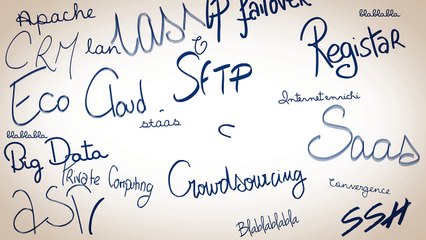 Apache
IP failover
blablabla
CRM
lan
Registar
SFTP
Eco Cloud
staas
Internet enrichi
blablabla
Big Data
Saas
Private Computing
Crowdsourcing
Convergence
Blablablabla
SSH